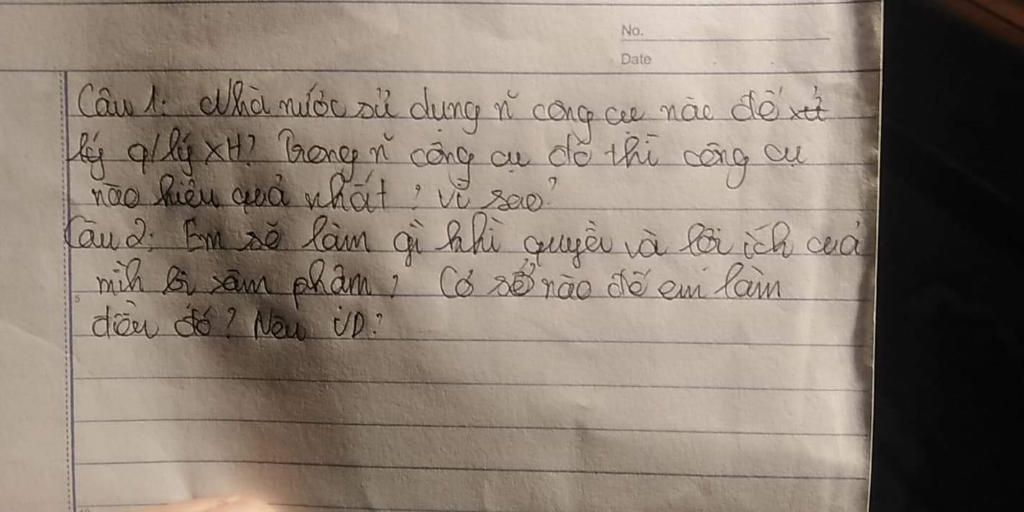 No.
Date
Câu 1: Nhà nước sử dụng n~ công cụ nào để xử
lý q/lý XH? Trong n~ công cụ đó thì công cụ
nào hiệu quả nhất, vì sao?
Câu 2: Em sẽ làm gì khi quyền và lợi ích của
mìh bị xâm phạm? Cơ sở nào để em làm
điều đó? Nêu VD?